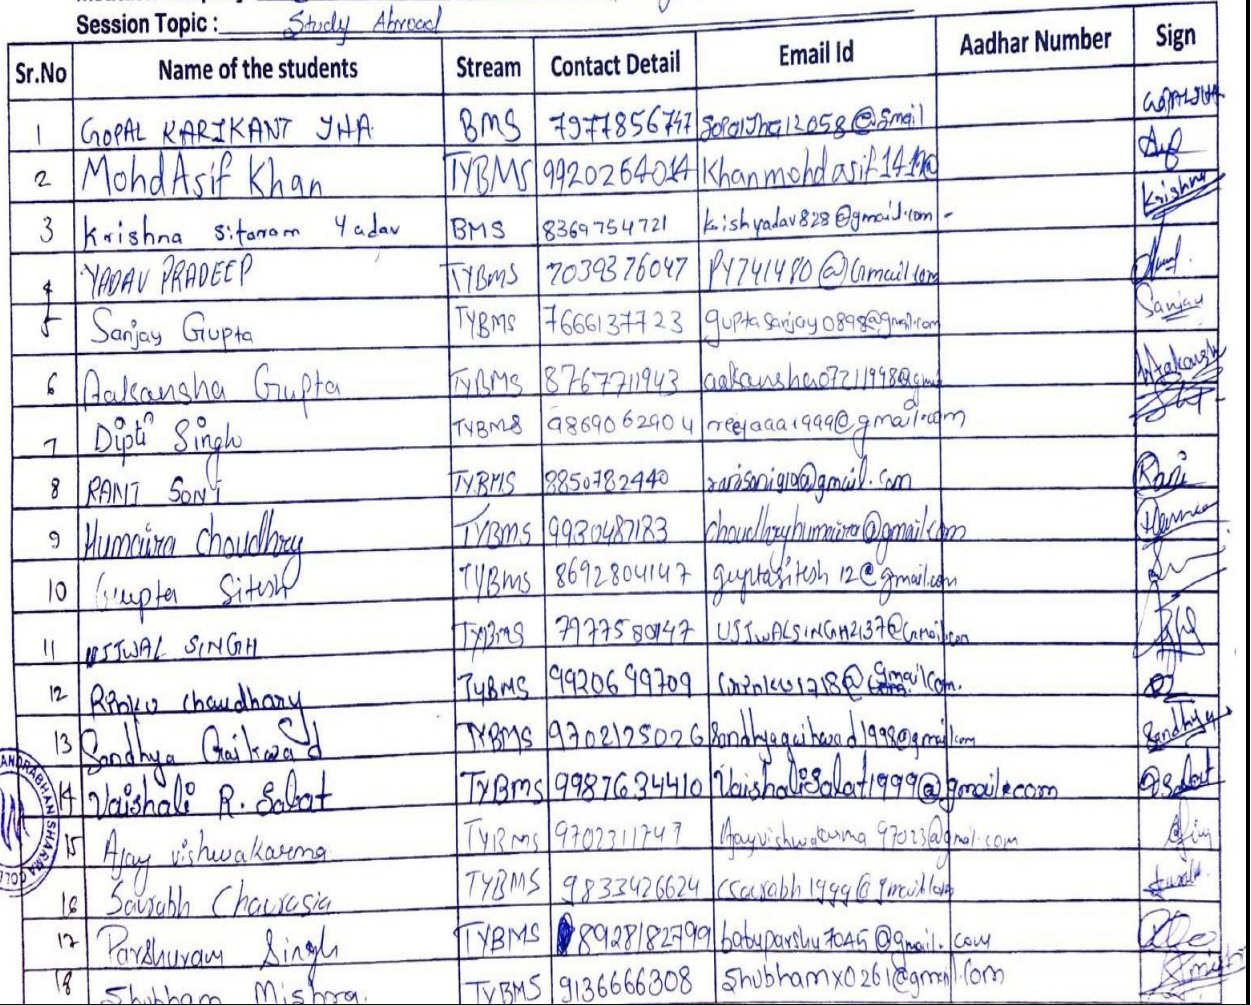 Session Topic : Study Abroad
Sr.No Name of the students Stream Contact Detail Email Id Aadhar Number Sign
1 GOPAL KARIKANT JHA BMS 7977856747 gopaljha12058@gmail GOPALJHA
2 Mohd Asif Khan TYBMS 9920264014 Khanmohdasif141@
3 Krishna Sitaram Yadav BMS 8369754721 krishyadav828@gmail.com - Krishna
4 YADAV PRADEEP TYBMS 7039376047 PY741480@Gmail.com
5 Sanjay Gupta TYBMS 7666137723 guptasanjay0898@gmail.com Sanjay
6 Aakansha Gupta TYBMS 8767711943 aakansha07211998@gmai Aakansha
7 Dipti Singh TYBMS 9869062904 reejaaa1999@gmail.com
8 RANI SONI TYBMS 8850782440 ranisoni910@gmail.com Rani
9 Humaira Choudhry TYBMS 9930487183 choudhryhumaira@gmail.com
10 Gupta Sitesh TYBMS 8692804147 guptasitesh12@gmail.com
11 UJJWAL SINGH TYBMS 7977580147 UJJWALSINGH2137@Gmail.com
12 Rinku Chaudhary TYBMS 9920699709
13 Sandhya Gaikwad TYBMS 9702125026 Sandhyagaikwad1998@gmail.com Sandhya
14 Vaishali R. Salat TYBMS 9987634410 VaishaliSalat1999@gmail.com Salat
15 Ajay vishwakarma TYBMS 9702311747 Ajayvishwakarma97023@gmail.com
16 Saurabh Chaurasia TYBMS 9833426624 csaurabh1999@gmail.com
17 Parshuram Singh TYBMS 8928182799 babuparshu7045@gmail.com
18 Shubham Mishra. TYBMS 9136666308 Shubhamx0261@gmail.com